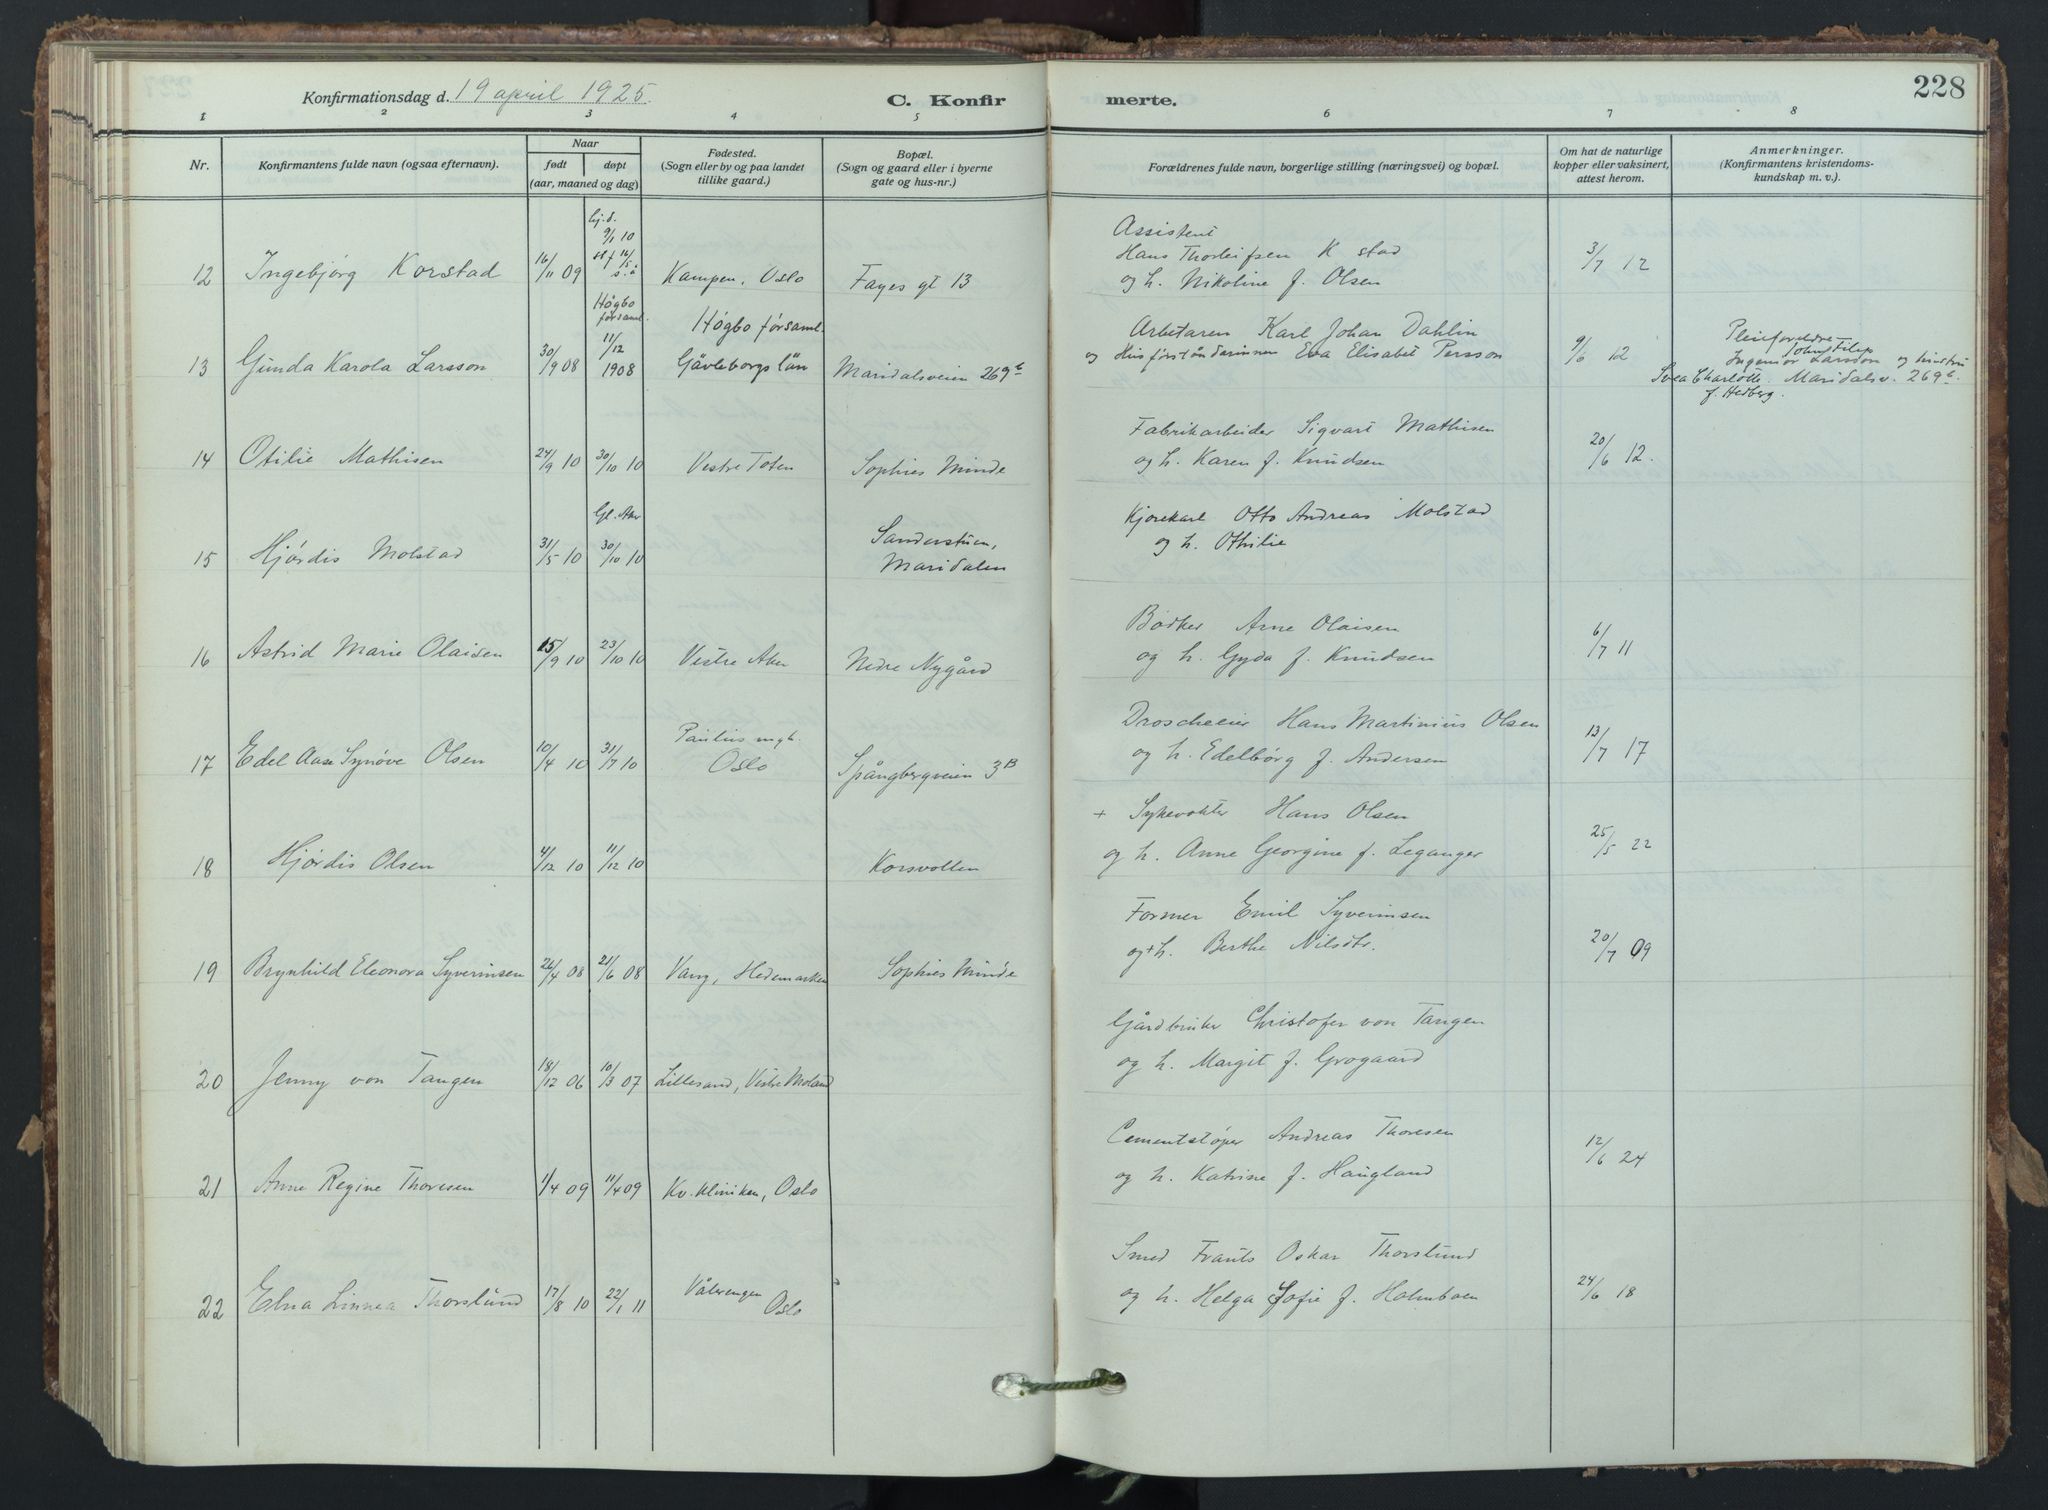 Konfirmationsdag d. 19 april 1925.
C. Konfirmerte.
228
1 2 3 4 5 6 7 8
Nr.
Konfirmantens fulde navn (ogsaa efternavn).
Naar
født
døpt
(aar, maaned og dag)
Fødested.
(Sogn eller by og paa landet
tillike gaard.)
Bopæl.
(Sogn og gaard eller i byerne
gate og hus-nr.)
Forældrenes fulde navn, borgerlige stilling (næringsvei) og bopæl.
Om hat de naturlige
kopper eller vaksinert,
attest herom.
Anmerkninger.
(Konfirmantens kristendoms-
kundskap m. v.)
12 Ingebjørg Korstad 16/11 09 hj.d. 9/1 10 Kampen, Oslo Fayes gt 13
Assistent
Hans Thorleifsen K stad
og h. Nikoline f. Olsen
3/7 12
13 Gunda Karola Larsson 30/9 08 Högbo församl. 11/12 1908
Högbo församl.
Gävleborgs län
Maridalsveien 269 b
Arbetaren Karl Johan Dahlin
og Husförståndarinnen Eva Elisabet Persson
9/6 12
Pleieforeldre
Ingeniør John Filip Larsson og hustru
Svea Charlotte Maridalsv. 269 b.
f. Hedberg.
14 Otilie Mathisen 24/9 10 30/10 10 Vestre Toten Sophies Minde
Fabrikarbeider Sigvart Mathisen
og h. Karen f. Knudsen
20/6 12.
15 Hjørdis Molstad 31/5 10 Gl. Aker 30/10 10
Sanderstuen,
Maridalen
Kjørekarl Otto Andreas Molstad
og h. Othilie
16 Astrid Marie Olaisen 15/9 10 23/10 10 Vestre Aker Nedre Nygård
Bødker Arne Olaisen
og h. Gyda f. Knudsen
6/7 11
17 Edel Aase Synøve Olsen 10/4 10 31/7 10
Paulus mgh.
Oslo
Spångbergveien 3 B
Droscheeier Hans Martinius Olsen
og h. Edelbørg f. Andersen
13/7 17
18 Hjørdis Olsen 4/12 10 11/12 10 Korsvollen
+ Sykevokter Hans Olsen
og h. Anne Georgine f. Leganger
25/5 22
19 Brynhild Eleonora Syverinsen 26/4 08 21/6 08 Vang, Hedemarken Sophies Minde
Former Emil Syverinsen
og + h. Berthe Nilsdtr.
20/7 09
20 Jenny von Tangen 18/12 06 10/3 07 Lillesand, Vestre Moland
Gårdbruker Christofer von Tangen
og h. Margit f. Grogaard
21 Anne Regine Thoresen 1/4 09 11/4 09 Kv. kliniken, Oslo
Cementstøper Andreas Thoresen
og h. Katrine f. Haugland
12/6 24
22 Elna Linnea Thorslund 17/8 10 22/1 11
Vålerengen
Oslo
Smed Frants Oskar Thorslund
og h. Helga Sofie f. Holmboen
24/6 18